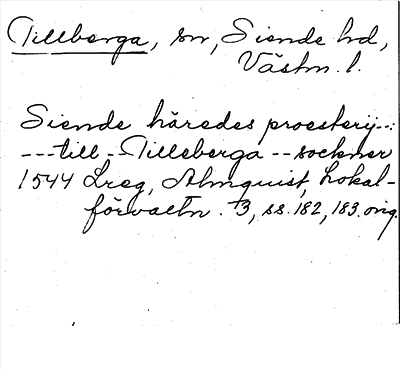 Tillberga, sn, Siende hd,
Västm. l.
Siende häredes proesterij--:
---till--Tilleberga--sockner
1544 Lreg, Almquist, Lokal-
förvaltn. 3, ss. 182, 183. orig.